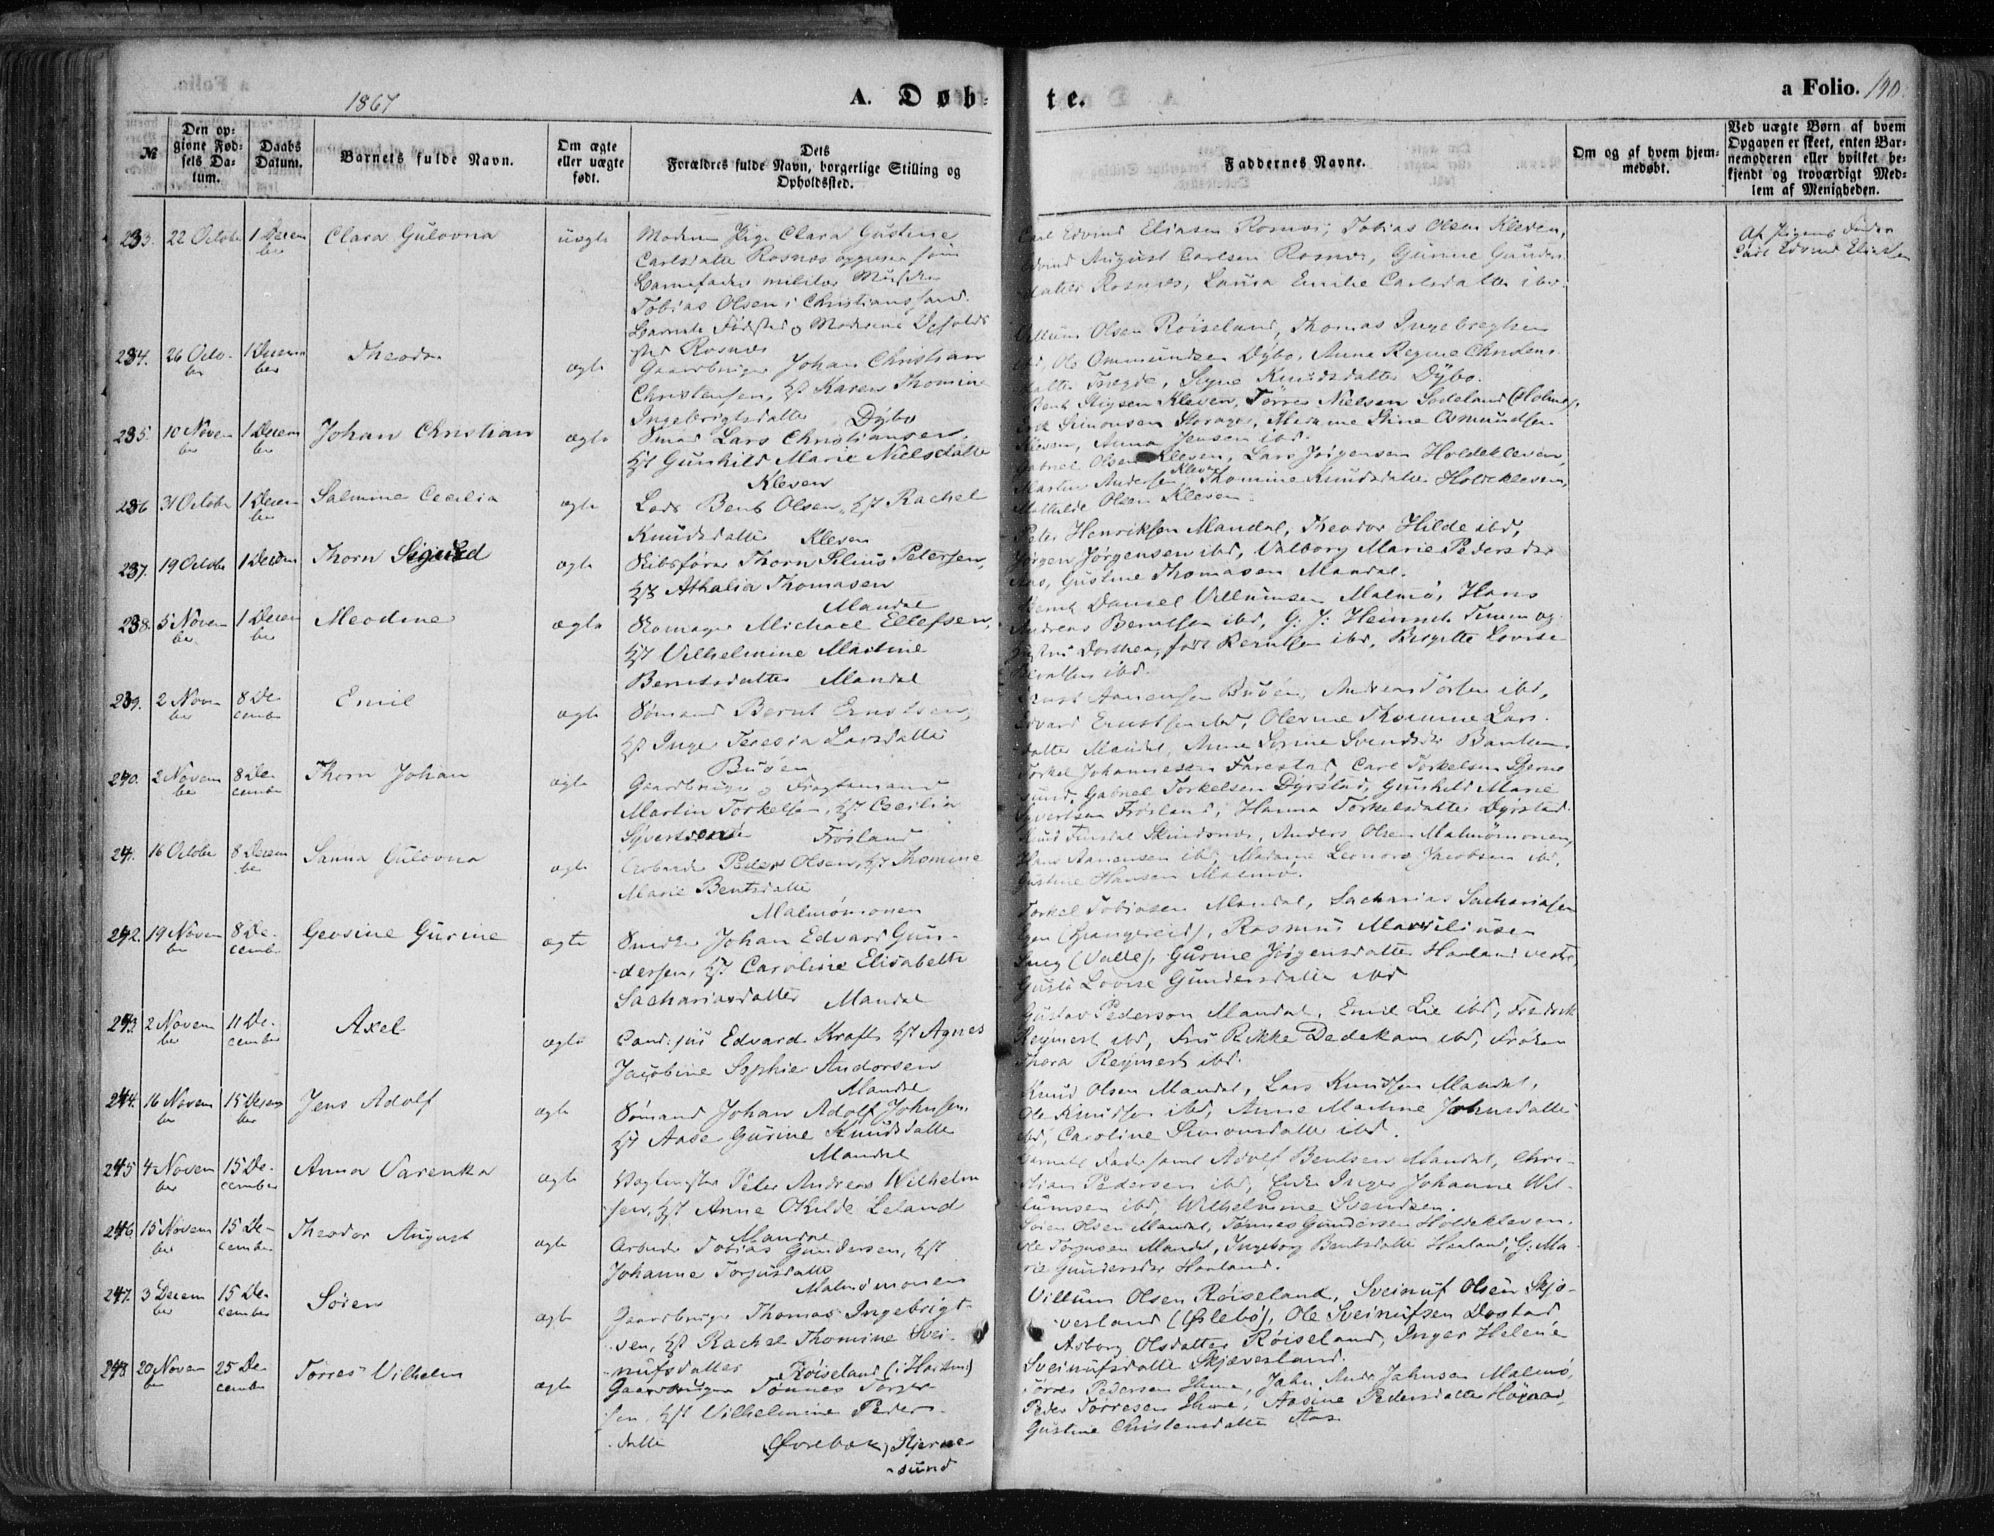 1867
A. Døb-
te.
a Folio. 190.
№
Den op-
givne Fød-
sels Da-
tum.
Daabs
Datum.
Barnets fulde Navn.
Om ægte
eller uægte
født.
Dets
Forældres fulde Navn, borgerlige Stilling og
Opholdssted.
Faddernes Navne.
Om og af hvem hjem-
medøbt.
Ved uægte Børn af hvem
Opgaven er skeet, enten Bar-
nemoderen eller hvilket be-
kjendt og troværdigt Med-
lem af Menigheden.
233. 22 Octobr 1 Decem
ber
Clara Gulovna
uægte
Moderen Pige Clara Gustine
Carlsdatter Rosnæs opgiver som
Barnefader militær
Tobias Olsen i Christianssand.
Barnets Fødested og Moderens Opholds
sted Rosnæs
Carl Edvind Eliasen Rosnæs, Tobias Olsen Kleven,
Edvind August Carlsen Rosnæs, Gunne Gunders
datter Rosnæs, Laura Emilie Carlsdatter ibd.
Af Pigens Fader
Carl Edvind Eliasen
234. 26 Octo-
ber
1 Decem
ber
Theodor
ægte
Gaardbruger Johan Christian
Christensen, Hst Karen Thomine
Ingebrigtsdatter Dybo
Villum Olsen Röiseland, Thomas Ingebregtsen
ibd, Ole Ommundsen Dybo, Anne Regine Christens
datter Tregde, Signe Knudsdatter Dybo.
235. 10 Novem
ber
1 Decem
ber
Johan Christian
ægte
Smed Lars Christiansen,
Hst Gunhild Marie Nielsdatter
Kleven
Bent Stigsen Kleven, Tørres Nielsen Sodeland (Holme),
Simonsen Storager, Madame Stine Osmundsen
Kleven, Anna Jensen ibd.
236 31 Octobr 1 Decem
ber
Salmine Cecilia
ægte
Lods Bent Olsen, Hst Rachel
Knudsdatter Kleven
Gabriel Olsen Kleven, Lars Jørgensen Holdekleven,
Martin Andersen Kleven Thomine Knudsdatter Holdekleven,
Mathilde Olsen Kleven.
237. 19 Octobr 1 Decem
Thorn Sigurd
ægte
Skibsfører Thorn Silius Petersen,
Hst Athalia Thomasen
Mandal
Peter Henriksen Mandal, Theodor Hilde ibd,
Jörgen Jörgensen ibd, Valborg Marie Pedersdtr
Aas, Gustine Thomasen Mandal.
238. 5 Novem
ber
1 Decem
ber
Meodine
ægte
Skomager Michael Ellefsen,
Hst Vilhelmine Martine
Berntsdatter Mandal
Bernt Daniel Villumsen Malmø, Hans
Andreas Berntsen ibd, G. J. Heinrich Timm og
Hustru Dorthea, født Berntsen ibd, Birgitte Lovise
ibd.
239. 2 Novem
ber
8 De
cember
Emil
ægte
Sømand Bernt Ernstsen,
Hst Inger Teresia Larsdatter
Buöen
Ernst Aanensen Buöen, Andreas ibd,
Edvard Ernstsen ibd, Olevine Thomine Lars-
datter Mandal, Anne Serine Svendsdtr Banken.
240. 2 Novem
ber
8 De-
cember
Thorn Johan
ægte
Gaardbruger og Fragtemand
Martin Torkelsen, Hst Cecilia
Syvertsdatter Fröiland
Torkel Johannesen Farestad, Carl Torkelsen Stjerne
sund, Gabriel Torkelsen Dyrstad, Gunhild Marie
Syvertsen Fröiland, Hanna Torkelsdatter Dyrstad.
241. 16 Octobr 8 Decem
ber
Sanna Gulovna
ægte
Arbeider Peder Olsen, Hst Thomine
Marie Bentsdatter
Malmömonen
Knud Finsdal Skinsnæs, Anders Olsen Malmömonen,
Hans Aanensen ibd, Madame Leonore Jacobsen ibd,
Gustine Hansen Malmö.
242. 19 Novem
ber
8 De-
cember
Gevsine Gurine
ægte
Snedker Johan Edvard Gun-
dersen, Hst Caroline Elisabeth
Sachariasdatter Mandal
Torkel Tobiasen Mandal, Sacharias Sachariasen
(Spangereid), Rasmus Marsiliusen
(Valle), Gurine Jørgensdatter Haaland vestre,
Gusta Lovise Gundersdatter ibd
243. 2 Novem
ber
11 De-
cember
Axel
ægte
Cand. jur. Edvard Kraft, Hst Agnes
Jacobine Sophie Andorsen
Mandal
Gustav Pedersen Mandal, Emil Lie ibd, Fredrik
Reymert ibd, Fru Rikke Dedekam ibd, Frøken
Thora Reymert ibd.
244. 16 Novem
ber
15 Decem
ber
Jens Adolf
ægte
Sømand Johan Adolf Johnsen,
Hst Aase Gurine Knudsdatter
Mandal
Knud Olsen Mandal, Lars Knudsen Mandal,
Ole Knudsen ibd, Anne Martine Johnsdatter
ibd, Caroline Simonsdatter ibd.
245 4 Novem
ber
15 De-
cember
Anna Varenka
ægte
Vagtmester Peter Andreas Wilhelm
sen, Hst Anne Othilde Leland
Mandal
Barnets Fader samt Adolf Bentsen Mandal, Chri-
stian Pedersen ibd, Enke Inger Johanne Wil-
lumsen ibd, Wilhelmine Svendsen.
246 15 Novem
ber
15 De-
cember
Theodor August
ægte
Arbeider Tobias Gundersen, Hst
Johanne Torjusdatter
Malmömonen
Søren Olsen Mandal, Tønnes Gundersen Holdekleven,
Ole Torjusen Mandal, Ingeborg Bentsdatter Haaland, G. Ma-
rie Gundersdtr Haaland.
247. 3 Decem
ber
15 De-
cember
Sören
ægte
Gaardbruger Thomas Ingebrigt-
sen, Hst Rachel Thomine Svei-
nufsdatter Röiseland (i Harkm)
Villum Olsen Röiseland, Sveinuf Olsen Skjæ-
verland (Øslebø), Ole Sveinufsen Dostad
Asborg Olsdatter Röiseland, Inger Helene
Sveinufsdatter Skjæverland.
248 20 Novem
ber
25 De-
cember
Törres Vilhelm
ægte
Gaardbruger Tønnes Torger
sen, Hst Vilhelmine Peders-
datter Øvrebøk, Stjerne-
sund
Törres Pedersen Ihme, Jahn And. Jahnsen Malmø,
Peder Torresen Ihme, Aasine Pedersdatter
Gustine Christensdatter Aas